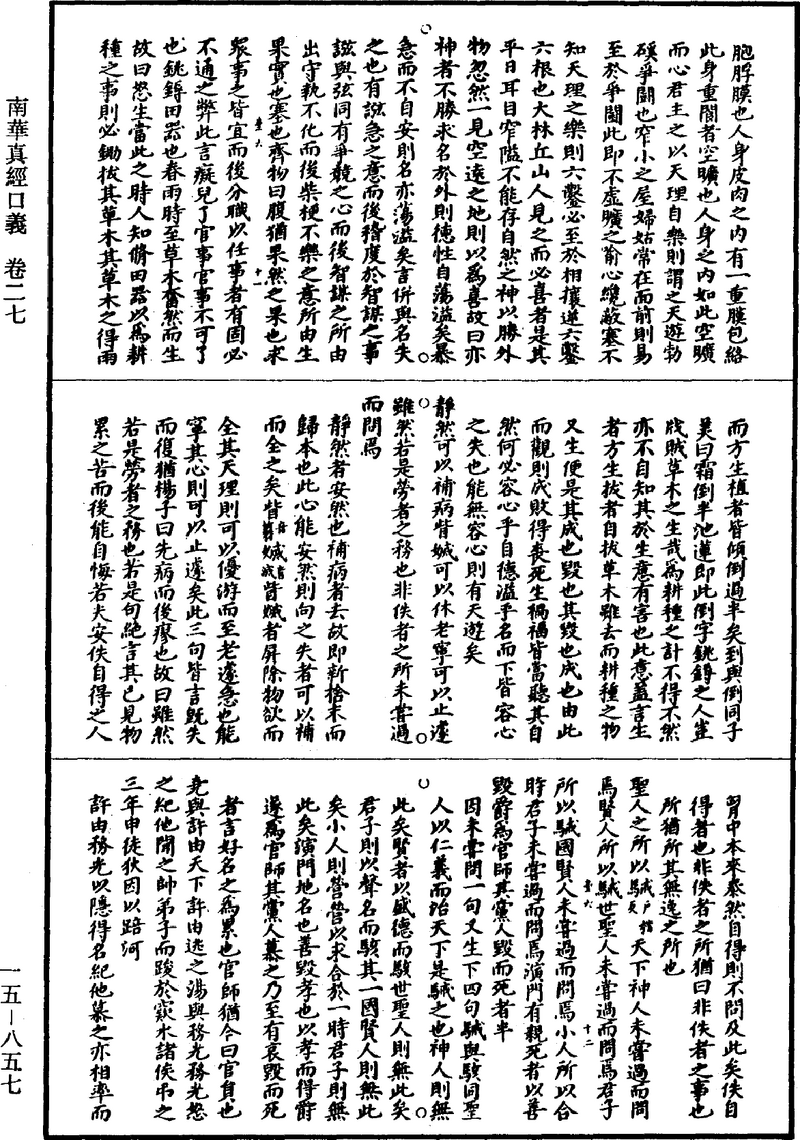 南華真經口義　卷二七
胞脬膜也人身皮肉之內有一重膜包絡
此身重閬者空曠也人身之內如此空曠
而心君主之以天理自樂則謂之天遊勃
磎爭鬪也窄小之屋婦姑常在面前則易
至於爭鬪此即不虛曠之喻心纔蔽塞不
知天理之樂則六鑿必至於相攘逆六鑿
六根也大林丘山人見之而必喜者是其
平日耳目窄隘不能存自然之神以勝外
物忽然一見空遠之地則以爲喜故曰亦
神者不勝求名於外則德性自蕩溢矣暴
急而不自安則名亦蕩溢矣言併與名失
之也有誸急之意而後稽度於智謀之事
誸與弦同有爭競之心而後智謀之所由
出守執不化而後柴梗不樂之意所由生
果實也塞也齊物曰腹猶果然之果也求
衆事之皆宜而後分職以任事者有固必
不通之弊此言癡兒了官事官事不可了
也銚鎒田器也春雨時至草木奮然而生
故曰怒生當此之時人知脩田器以爲耕
種之事則必鋤拔其草木其草木之得雨
而方生植者皆傾倒過半矣到與倒同子
美曰霜倒半池蓮即此倒字銚鎒之人豈
戕賊草木之生哉爲耕種之計不得不然
亦不自知其於生意有害也此意蓋言生
者方生拔者自拔草木雖去而耕種之物
又生便是其成也毀也其毀也成也由此
而觀則成敗得喪死生禍福皆當聽其自
然何必容心乎自德溢乎名而下皆容心
之失也能無容心則有天遊矣
靜然可以補病眥𡟬可以休老寧可以止遽
雖然若是勞者之務也非佚者之所未嘗過
而問焉
靜然者安然也補病者去故即新捨末而
歸本也此心能安然則向之失者可以補
而全之矣眥𡟬眥𡟬者屏除物欲而
全其天理則可以優游而至老遽急也能
寧其心則可以止遽矣此三句皆言既失
而復猶楊子曰先病而後瘳也故曰雖然
若是勞者之務也若是句絕言其已見物
累之苦而後能自悔若夫安佚自得之人
胷中本來泰然自得則不問及此矣佚自
得者也非佚者之所猶曰非佚者之事也
所猶所其無逸之所也
聖人之所以駴戶楷反天下神人未嘗過而問
焉賢人所以駴世聖人未嘗過而問焉君子
所以駴國賢人未嘗過而問焉小人所以合
時君子未嘗過而問焉演門有親死者以善
毀爵爲官師其黨人毀而死者半
因未嘗問一句又生下四句駴與駭同聖
人以仁義而治天下是駴之也神人則無
此矣賢者以盛德而駭世聖人則無此矣
君子則以聲名而駭其一國賢人則無此
矣小人則營營以求合於一時君子則無
此矣演門地名也善毀孝也以孝而得爵
遂爲官師其黨人慕之乃至有哀毀而死
者言好名之爲累也官師猶今曰官員也
堯與許由天下許由逃之湯與務光務光怒
之紀他聞之帥弟子而踆於窾水諸侯弔之
三年申徒狄因以踣河
許由務光以隱得名紀他慕之亦相率而
一五—八五七